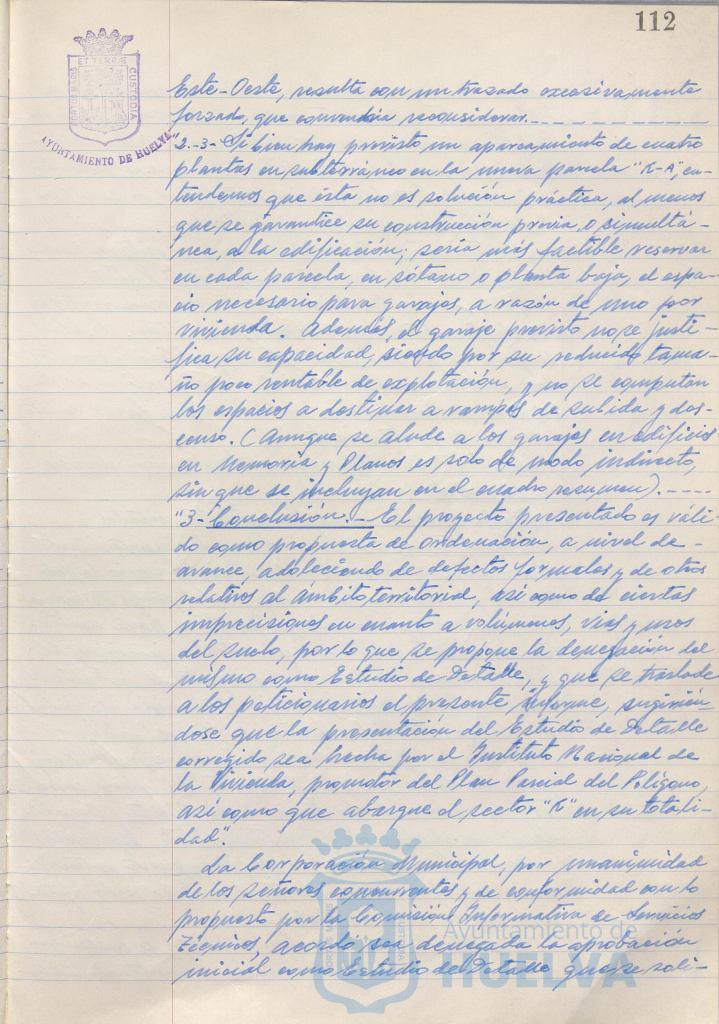 112
PORTUS MARIS
ET TERRAE
CUSTODIA
AYUNTAMIENTO DE HUELVA
Este-Oeste, resulta con un trazado excesivamente
forzado, que convendría reconsiderar.
2.-3- Si bien hay previsto un aparcamiento de cuatro
plantas en subterráneo en la nueva parcela "K-A", en-
tendemos que ésta no es solución práctica, al menos
que se garantice su construcción previa, o simultá-
nea, a la edificación; sería más factible reservar
en cada parcela, en sótano o planta baja, el espa-
cio necesario para garajes, a razón de uno por
vivienda. Además, el garaje previsto no se justi-
fica su capacidad, siendo por su reducido tama-
ño poco rentable de explotación, y no se computan
los espacios a destinar a rampas de subida y des-
censo. (Aunque se alude a los garajes en edificios
en Memoria y Planos es solo de modo indirecto,
sin que se incluyan en el cuadro resumen).----
"3- Conclusión.- El proyecto presentado es váli-
do como propuesta de ordenación, a nivel de
avance, adoleciendo de defectos formales y de otros
relativos al ámbito territorial, así como de ciertas
imprecisiones en cuanto a volúmenes, vías y usos
del suelo, por lo que se propone la denegación del
mismo como Estudio de Detalle, y que se traslade
a los peticionarios el presente informe, sugirién-
dose que la presentación del Estudio de Detalle
corregido sea hecha por el Instituto Nacional de
la Vivienda, promotor del Plan Parcial del Polígono,
así como que abarque el sector "K" en su totali-
dad".
La Corporación Municipal, por unanimidad
de los señores concurrentes y de conformidad con lo
propuesto por la Comisión Informativa de Servicios
Técnicos, acordó sea denegada la aprobación
inicial como Estudio de Detalle que se soli-
Ayuntamiento de
HUELVA